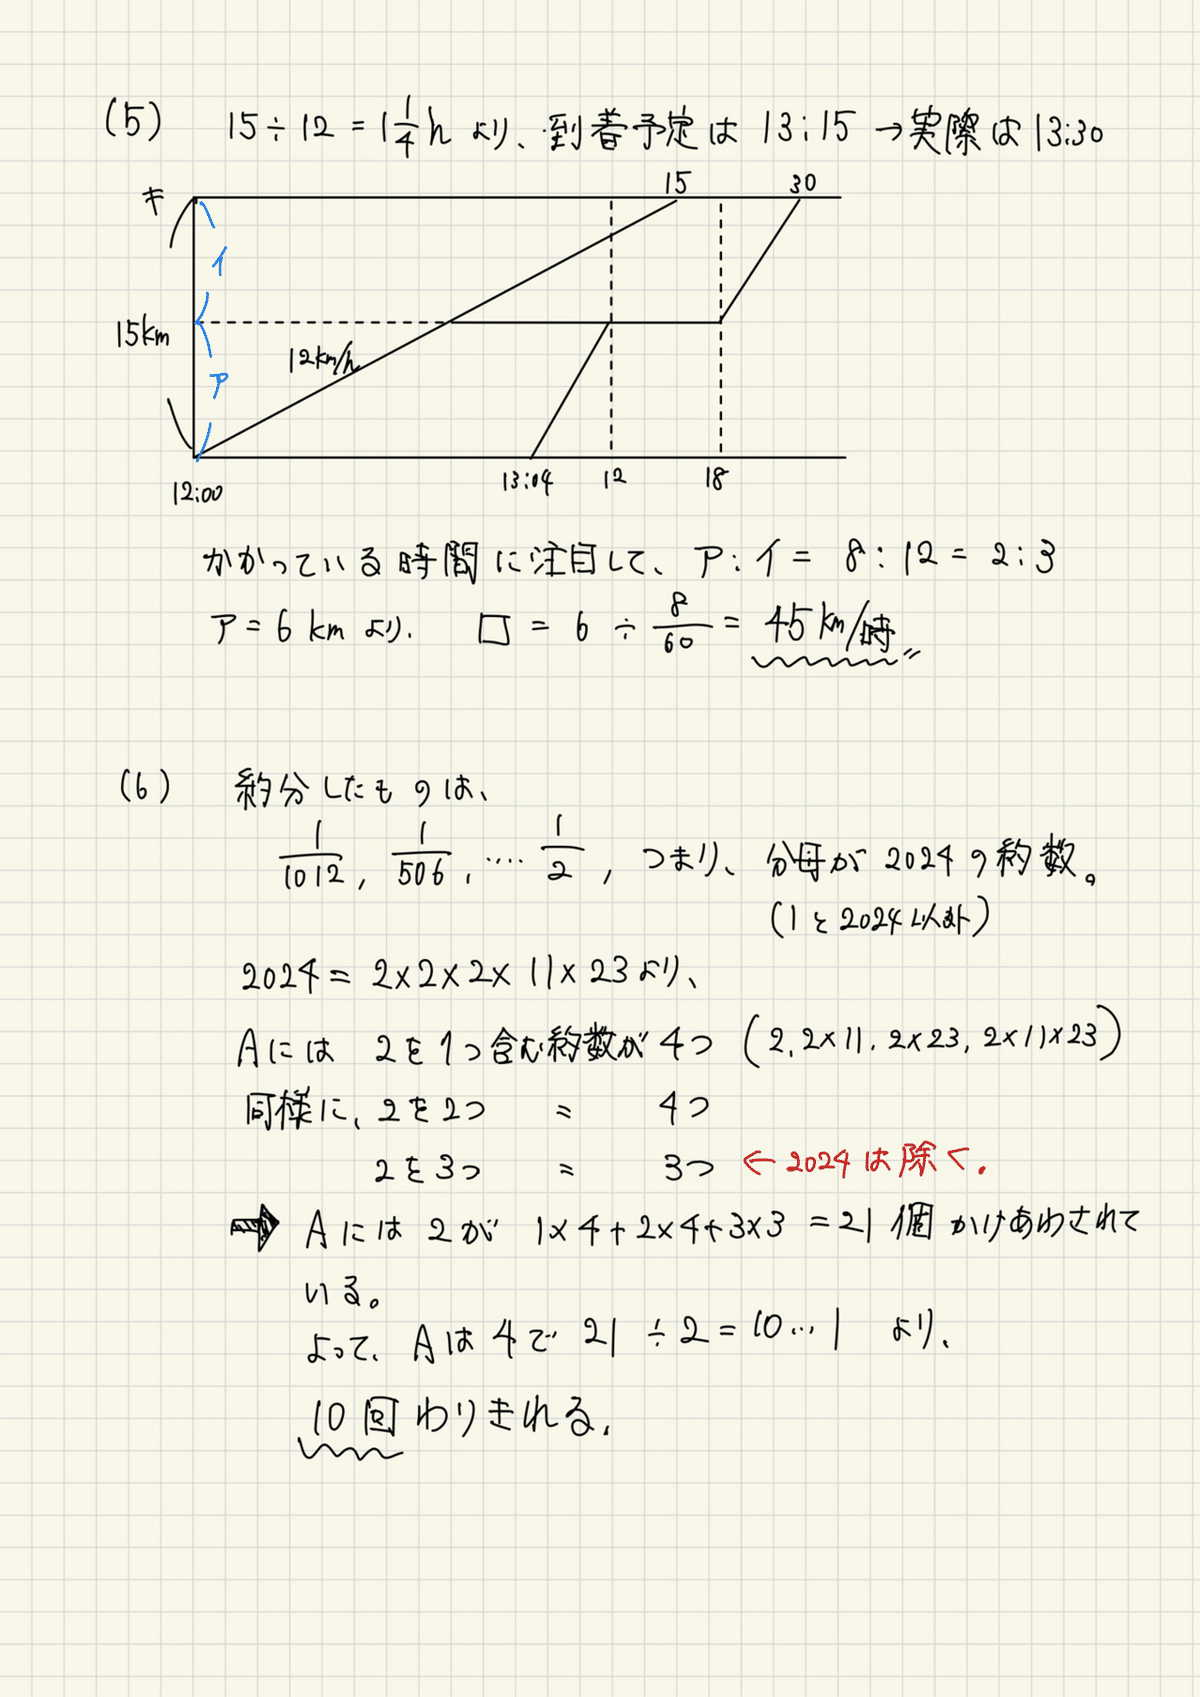 (5) 15÷12 = 1 1/4 h より、到着予定は 13:15 →実際は13:30
キ 15 30
イ
15km
12km/h
ア
12:00 13:04 12 18
かかっている時間に注目して、ア:イ = 8:12 = 2:3
ア=6 km より. □ = 6 ÷ 8/60 = 45 km/時〃
(6) 約分したものは、
1/1012, 1/506, ‥‥ 1/2, つまり、分母が 2024の約数。
(1と2024以外)
2024 = 2×2×2×11×23より、
Aには 2を1つ含む約数が 4つ (2, 2×11, 2×23, 2×11×23)
同様に、2を2つ 〃 4つ
2を3つ 〃 3つ ← 2024は除く.
➡ Aには 2が 1×4+2×4+3×3 =21 個 かけあわされて
いる。
よって、Aは 4で 21 ÷2=10…1 より、
10回 わりきれる.